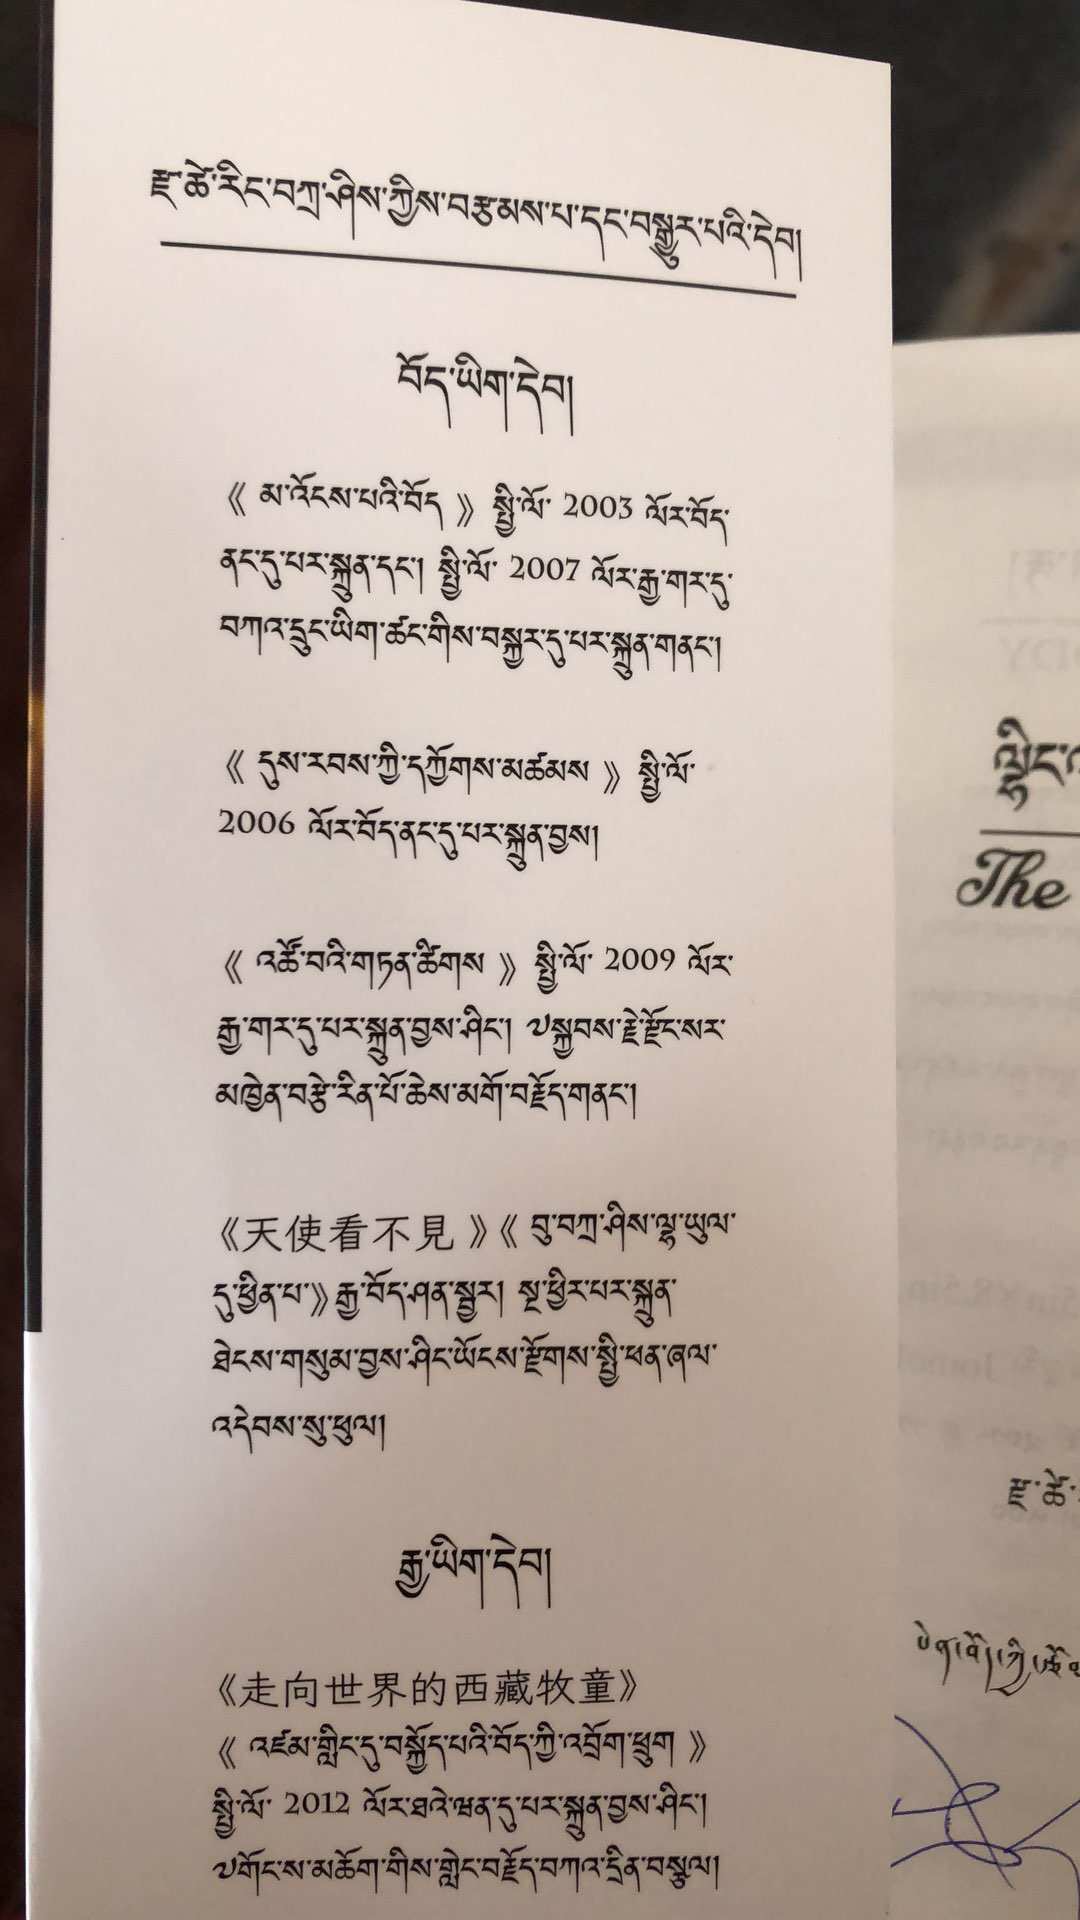 རྫ་ཚེ་རིང་བཀྲ་ཤིས་ཀྱིས་བརྩམས་པ་དང་བསྒྱུར་པའི་དེབ།
བོད་ཡིག་དེབ།
《 མ་འོངས་པའི་བོད 》 སྤྱི་ལོ་ 2003 ལོར་བོད་
ནང་དུ་པར་སྐྲུན་དང་། སྤྱི་ལོ་ 2007 ལོར་རྒྱ་གར་དུ་
བཀའ་དྲུང་ཡིག་ཚང་གིས་བསྐྱར་དུ་པར་སྐྲུན་གནང་།
《 དུས་རབས་ཀྱི་དཀྱོགས་མཚམས 》 སྤྱི་ལོ་
2006 ལོར་བོད་ནང་དུ་པར་སྐྲུན་བྱས།
《 འཚོ་བའི་གཏན་ཚིགས 》 སྤྱི་ལོ་ 2009 ལོར་
རྒྱ་གར་དུ་པར་སྐྲུན་བྱས་ཤིང་། ༧སྐྱབས་རྗེ་རྫོང་སར་
མཁྱེན་བརྩེ་རིན་པོ་ཆེས་མགོ་བརྗོད་གནང་།
《天使看不見 》《 བུ་བཀྲ་ཤིས་ལྷ་ཡུལ་
དུ་ཕྱིན་པ་》རྒྱ་བོད་ཤན་སྦྱར། སྔ་ཕྱིར་པར་སྐྲུན་
ཐེངས་གསུམ་བྱས་ཤིང་ཡོངས་རྫོགས་སྤྱི་ཕན་ཞལ་
འདེབས་སུ་ཕུལ།
རྒྱ་ཡིག་དེབ།
《走向世界的西藏牧童》
《 འཛམ་གླིང་དུ་བསྐྱོད་པའི་བོད་ཀྱི་འབྲོག་ཕྲུག 》
སྤྱི་ལོ་ 2012 ལོར་ཐའེ་ཝན་དུ་པར་སྐྲུན་བྱས་ཤིང་།
༧གོང་ས་མཆོག་གིས་གླེང་བརྗོད་བཀའ་དྲིན་བསྩལ།
The
རྫ་ཚེ་